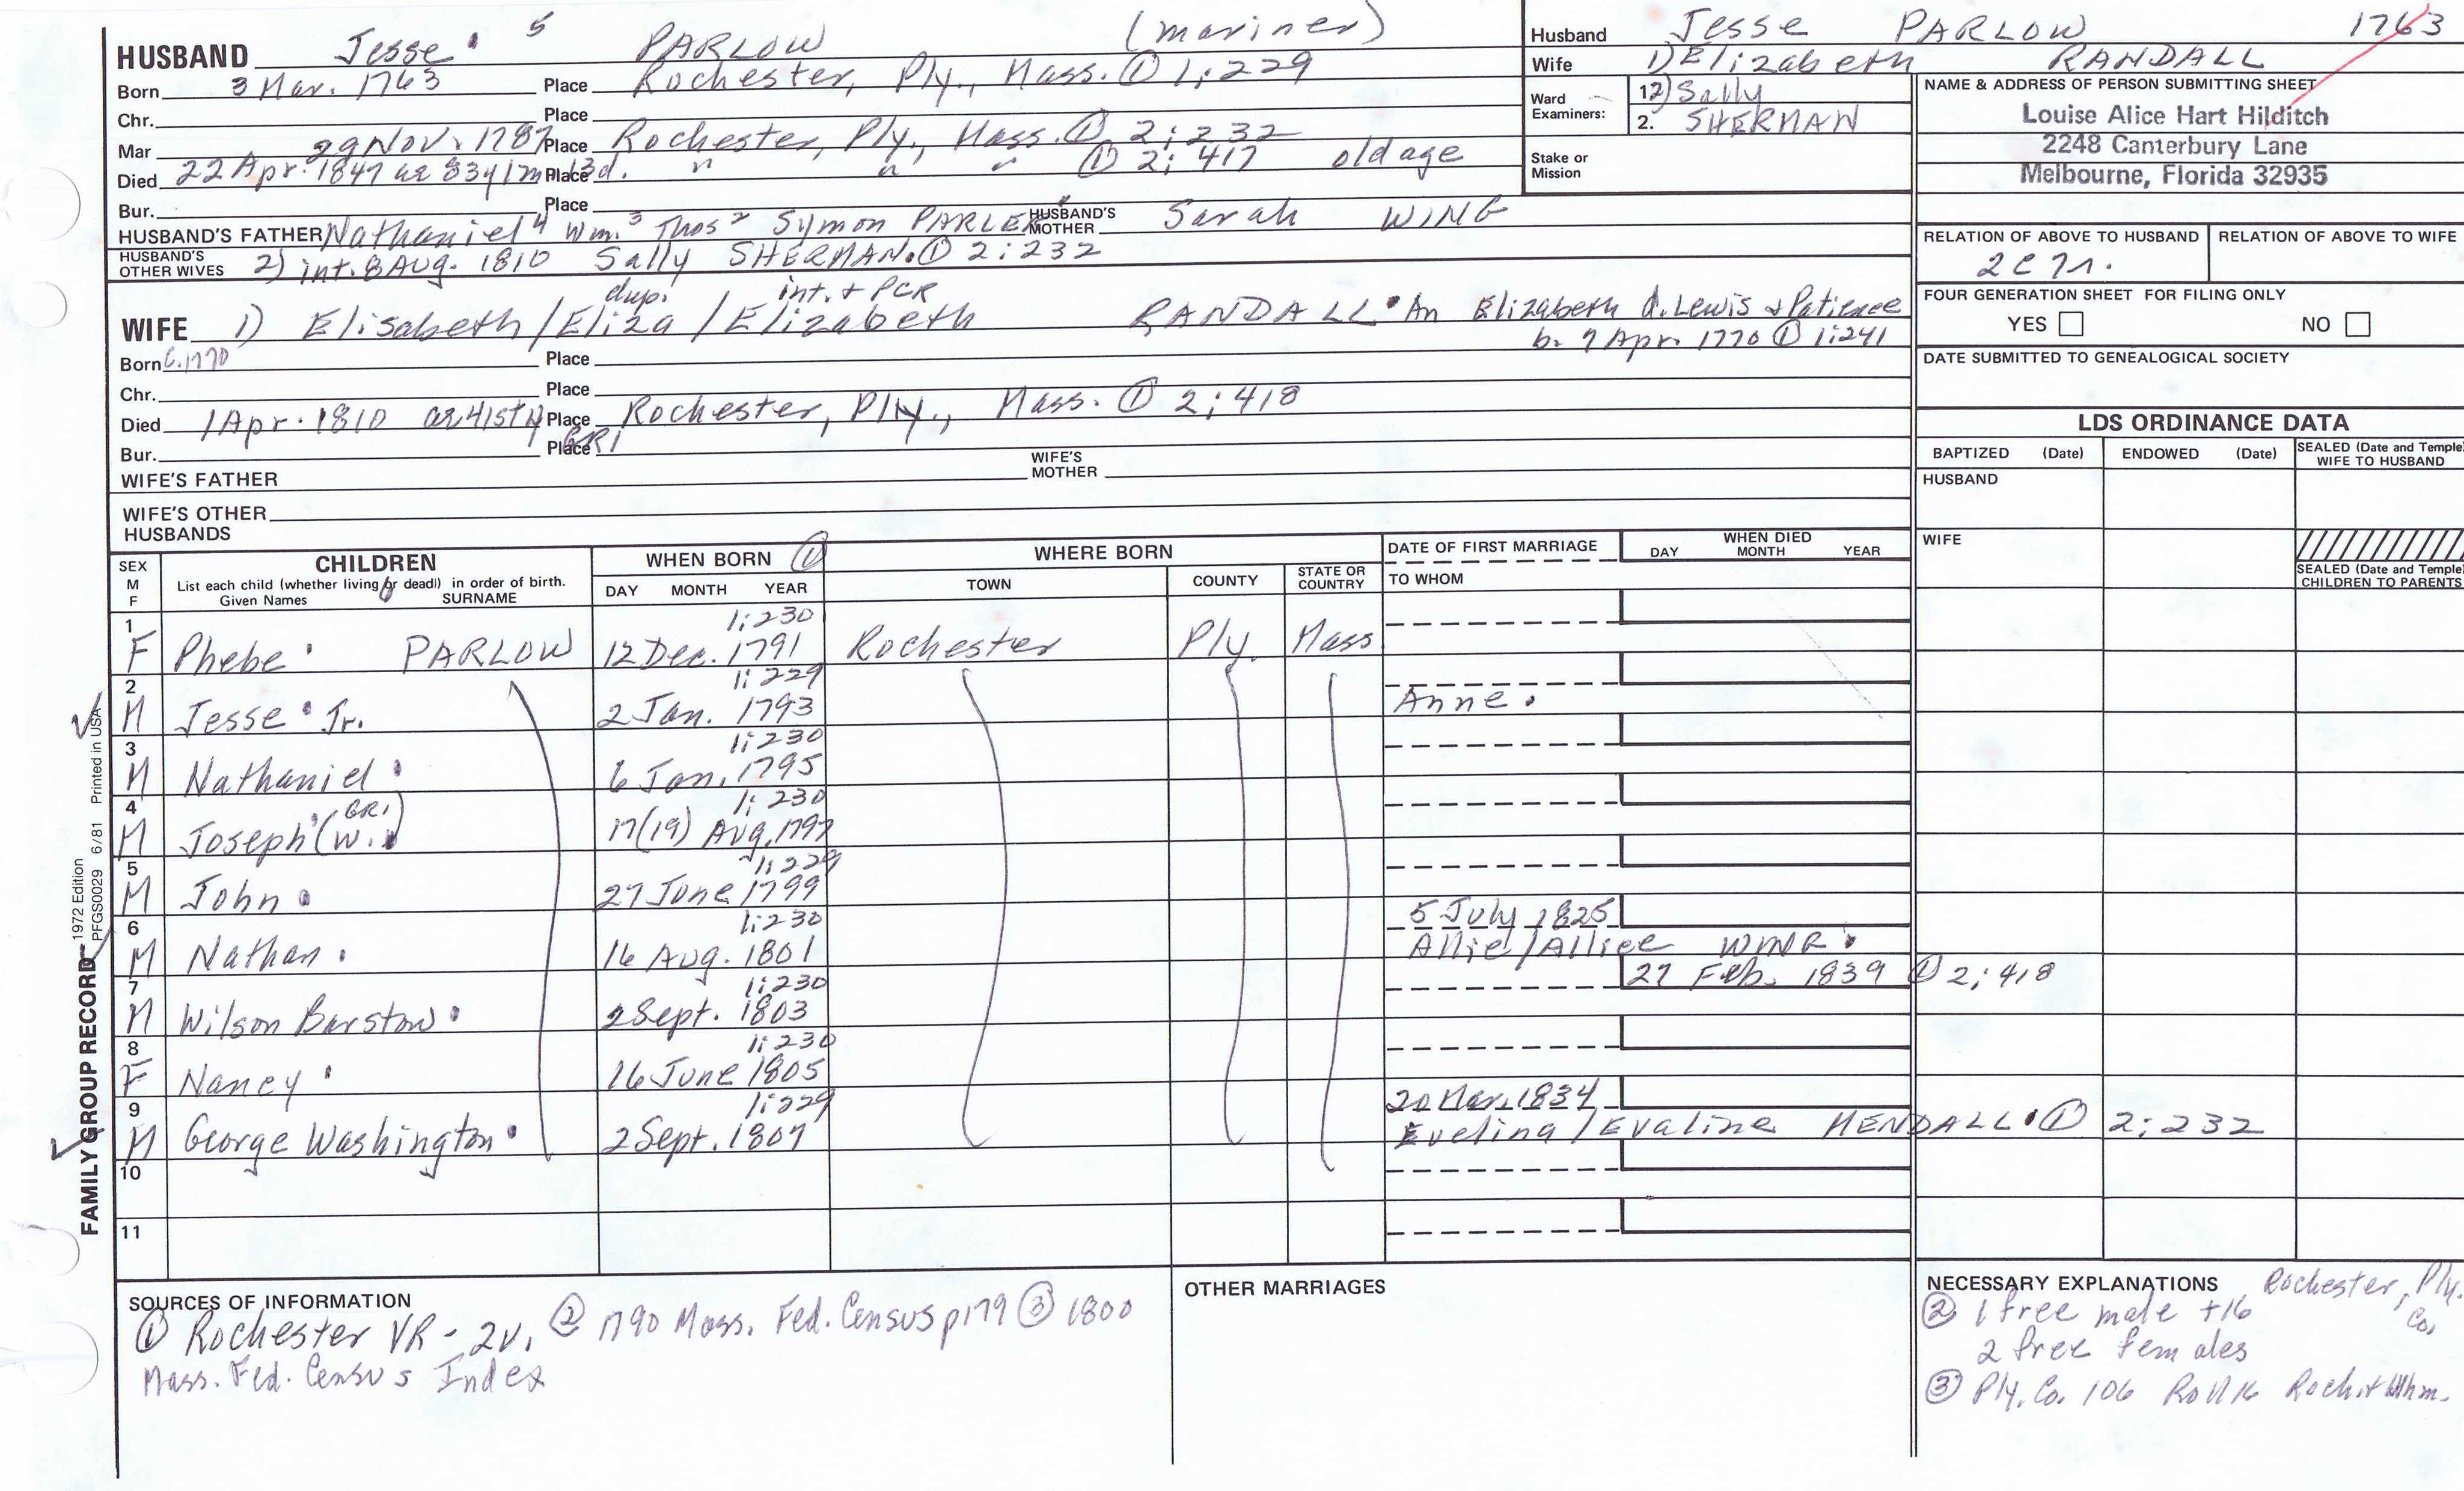 HUSBAND Jesse 5 PARLOW (mariner)
Born 3 Mar. 1763 Place Rochester, Ply., Mass. ① 1:229
Chr. Place
Mar 29 Nov. 1787 Place Rochester, Ply., Mass. ① 2:232
Died 22 Apr. 1847 ae 83y 1m 13d. Place " " " ① 2:417 old age
Bur. Place
HUSBAND'S FATHER Nathaniel⁴ Wm.³ Thos² Symon PARLER HUSBAND'S MOTHER Sarah WING
HUSBAND'S OTHER WIVES 2) int. 8 Aug. 1810 Sally SHERMAN. ① 2:232
dup. int. + PCR
WIFE 1) Elisabeth/Eliza/Elizabeth RANDALL An Elizabeth d. Lewis & Patience
b. 7 Apr. 1770 ① 1:241
Born C.1770 Place
Chr. Place
Died 1 Apr. 1810 ae 41st y Place Rochester, Ply., Mass. ① 2:418
Bur. Place GR1
WIFE'S FATHER WIFE'S MOTHER
WIFE'S OTHER HUSBANDS
Husband Jesse PARLOW 1763
Wife 1) Elizabeth RANDALL
Ward Examiners: 1. 2) Sally
2. SHERMAN
Stake or Mission
NAME & ADDRESS OF PERSON SUBMITTING SHEET
Louise Alice Hart Hilditch
2248 Canterbury Lane
Melbourne, Florida 32935
RELATION OF ABOVE TO HUSBAND RELATION OF ABOVE TO WIFE
FOUR GENERATION SHEET FOR FILING ONLY
YES NO
DATE SUBMITTED TO GENEALOGICAL SOCIETY
LDS ORDINANCE DATA
BAPTIZED (Date) ENDOWED (Date) SEALED (Date and Temple) WIFE TO HUSBAND
HUSBAND
WIFE
SEALED (Date and Temple) CHILDREN TO PARENTS
SEX M F CHILDREN WHEN BORN ① WHERE BORN DATE OF FIRST MARRIAGE WHEN DIED
List each child (whether living or dead) in order of birth.
Given Names SURNAME DAY MONTH YEAR TOWN COUNTY STATE OR COUNTRY TO WHOM DAY MONTH YEAR
1 1:230
F Phebe PARLOW 12 Dec. 1791 Rochester Ply. Mass
2 1:229
M Jesse Jr. 2 Jan. 1793 Anne
3 1:230
M Nathaniel 6 Jan. 1795
4 (GR1) 1:230
M Joseph (W.) 17(19) Aug. 1797
5 1:229
M John 27 June 1799
6 1:230 5 July 1825
M Nathan 16 Aug. 1801 Allie/Alliee
7 1:230 27 Feb. 1839 ① 2:418
M Wilson Barstow 2 Sept. 1803
8 1:230
F Nancy 16 June 1805
9 1:229 20 Mar. 1834
M George Washington 2 Sept. 1807 Eveline/Evaline MENDALL ① 2:232
10
11
FAMILY GROUP RECORD 1972 Edition PFGS0029 6/81 Printed in USA
SOURCES OF INFORMATION
① Rochester VR - 2v. ② 1790 Mass. Fed. Census p179 ③ 1800
Mass. Fed. Census Index
OTHER MARRIAGES
NECESSARY EXPLANATIONS Rochester, Ply. Co.
② 1 free male +16
2 free females
③ Ply. Co. 106 Roll 16